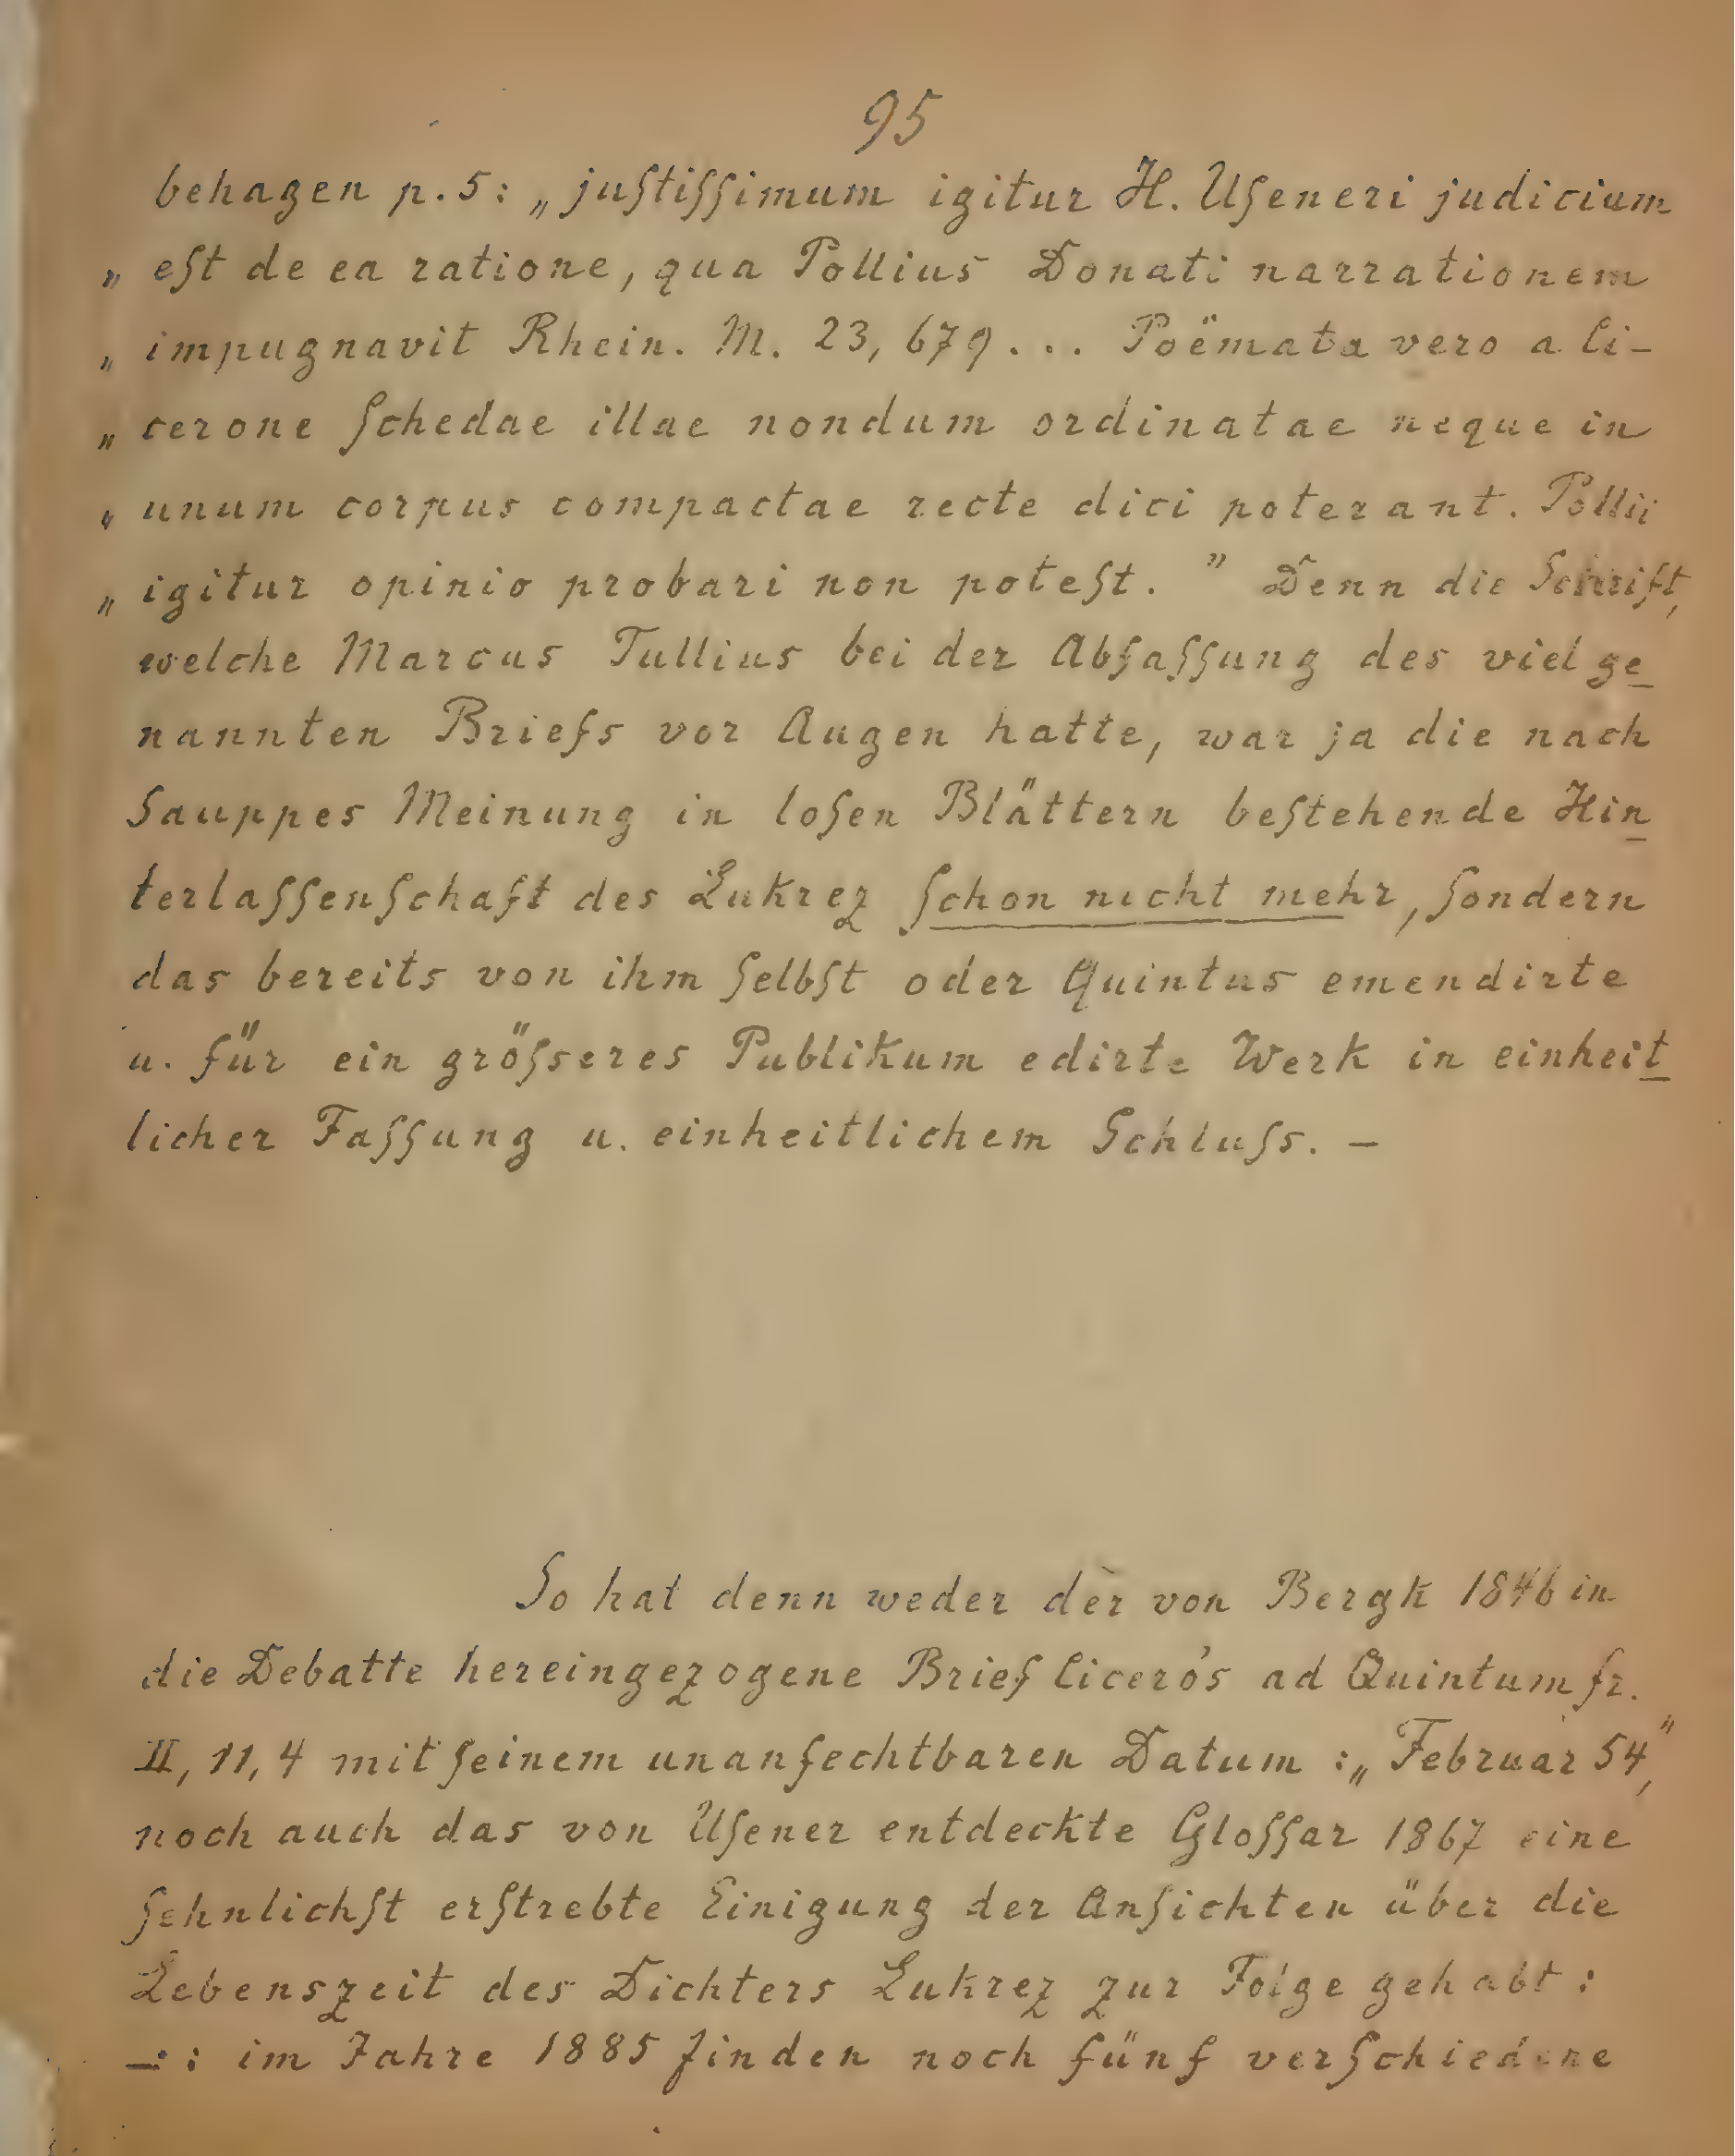 95
behagen p. 5: „juſtiſſimum igitur H. Uſeneri judicium
„ eſt de ea ratione, qua Pollius Donati narrationem
„ impugnavit Rhein. M. 23, 679 ... Poëmata vero a Ci-
„ cerone ſchedae illae nondum ordinatae neque in
„ unum corpus compactae recte dici poterant. Pollii
„ igitur opinio probari non poteſt. ” Denn die Schrift,
welche Marcus Tullius bei der Abfaſſung des viel ge
nannten Briefs vor Augen hatte, war ja die nach
Sauppes Meinung in loſen Blättern beſtehende Hin
terlaſſenſchaft des Lukrez ſchon nicht mehr, ſondern
das bereits von ihm ſelbſt oder Quintus emendirte
u. für ein gröſseres Publikum edirte Werk in einheit
licher Faſſung u. einheitlichem Schluſs. –
So hat denn weder der von Bergk 1846 in
die Debatte hereingezogene Brief Cicero's ad Quintum fr.
II, 11, 4 mit ſeinem unanfechtbaren Datum :„ Februar 54,”
noch auch das von Uſener entdeckte Gloſſar 1867 eine
ſehnlichſt erſtrebte Einigung der Anſichten über die
Lebenszeit des Dichters Lukrez zur Folge gehabt :
–: im Jahre 1885 finden noch fünf verſchiedene